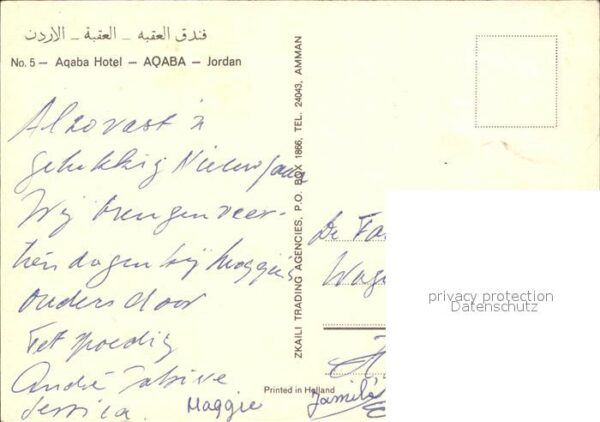 فندق العقبه – العقبة – الاردن
No. 5 – Aqaba Hotel – AQABA – Jordan
Alzovast 'n
gelukkig Nieuwjaar
Wij brengen veer-
tien dagen bij Maggie's
ouders door
Tot spoedig
André Sabine
Jessica. Maggie
Jamilé
ZKAILI TRADING AGENCIES, P.O. BOX 1866, TEL. 24043, AMMAN
De Fa
Wag
privacy protection
Datenschutz
Printed in Holland